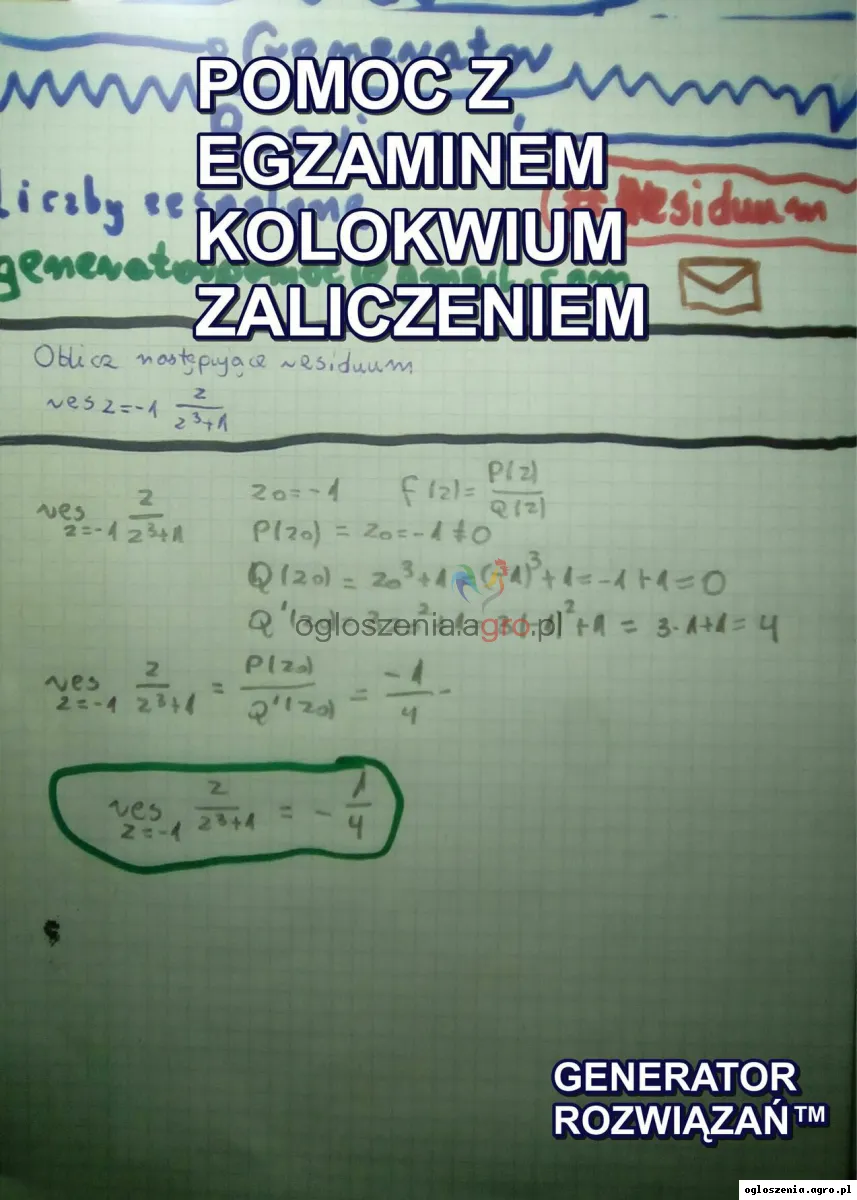 Generator
POMOC Z
EGZAMINEM
KOLOKWIUM
ZALICZENIEM
Liczby zespolone
#Residuum
Oblicz następujące residuum
res z=-1 z/z³+1
res z=-1 z/z³+1
z0=-1 f(z)= P(z)/Q(z)
P(z0) = z0=-1≠0
Q(z0) = z0³+1=(-1)³+1=-1+1=0
Q'(z0) ²+1 = 3·1+1=4
ogloszenia.agro.pl
res z=-1 z/z³+1 = P(z0)/Q'(z0) = -1/4
res z=-1 z/z³+1 = - 1/4
GENERATOR
ROZWIĄZAŃ™
ogloszenia.agro.pl